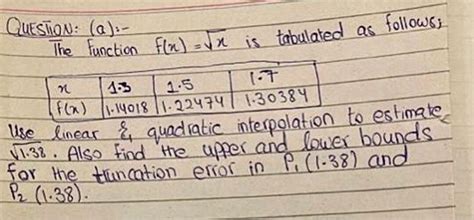 QUESTION: (a):-
The Function f(x) = √x is tabulated as follows;
x | 1.3 | 1.5 | 1.7
f(x) | 1.14018 | 1.22474 | 1.30384
Use linear & quadratic interpolation to estimate
√1.38. Also find the upper and lower bounds
for the truncation error in P₁ (1.38) and
P₂ (1.38).